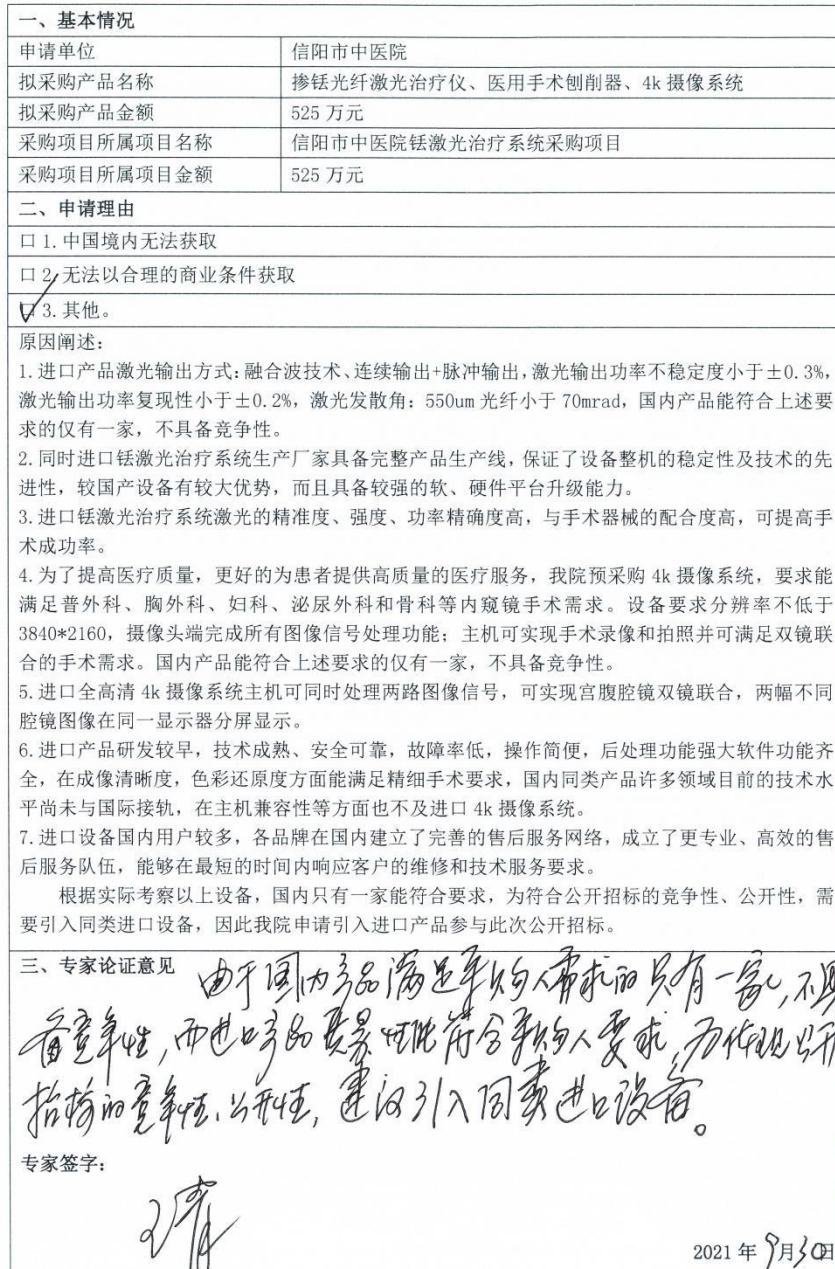 一、基本情况
申请单位 信阳市中医院
拟采购产品名称 掺铥光纤激光治疗仪、医用手术刨削器、4k 摄像系统
拟采购产品金额 525 万元
采购项目所属项目名称 信阳市中医院铥激光治疗系统采购项目
采购项目所属项目金额 525 万元
二、申请理由
口 1.中国境内无法获取
口 2.无法以合理的商业条件获取
口 3.其他。
原因阐述:
1.进口产品激光输出方式:融合波技术、连续输出+脉冲输出,激光输出功率不稳定度小于±0.3%,
激光输出功率复现性小于±0.2%,激光发散角:550um 光纤小于 70mrad,国内产品能符合上述要
求的仅有一家,不具备竞争性。
2.同时进口铥激光治疗系统生产厂家具备完整产品生产线,保证了设备整机的稳定性及技术的先
进性,较国产设备有较大优势,而且具备较强的软、硬件平台升级能力。
3.进口铥激光治疗系统激光的精准度、强度、功率精确度高,与手术器械的配合度高,可提高手
术成功率。
4.为了提高医疗质量,更好的为患者提供高质量的医疗服务,我院预采购 4k 摄像系统,要求能
满足普外科、胸外科、妇科、泌尿外科和骨科等内窥镜手术需求。设备要求分辨率不低于
3840*2160,摄像头端完成所有图像信号处理功能;主机可实现手术录像和拍照并可满足双镜联
合的手术需求。国内产品能符合上述要求的仅有一家,不具备竞争性。
5.进口全高清 4k 摄像系统主机可同时处理两路图像信号,可实现宫腹腔镜双镜联合,两幅不同
腔镜图像在同一显示器分屏显示。
6.进口产品研发较早,技术成熟、安全可靠,故障率低,操作简便,后处理功能强大软件功能齐
全,在成像清晰度,色彩还原度方面能满足精细手术要求,国内同类产品许多领域目前的技术水
平尚未与国际接轨,在主机兼容性等方面也不及进口 4k 摄像系统。
7.进口设备国内用户较多,各品牌在国内建立了完善的售后服务网络,成立了更专业、高效的售
后服务队伍,能够在最短的时间内响应客户的维修和技术服务要求。
根据实际考察以上设备,国内只有一家能符合要求,为符合公开招标的竞争性、公开性,需
要引入同类进口设备,因此我院申请引入进口产品参与此次公开招标。
三、专家论证意见 由于国内产品满足采购人需求的只有一家,不具
备竞争性,而进口产品 性能符合采购人要求,为体现公开
招标的竞争性、公开性,建议引入同类进口设备。
专家签字:
2021 年 9月30日